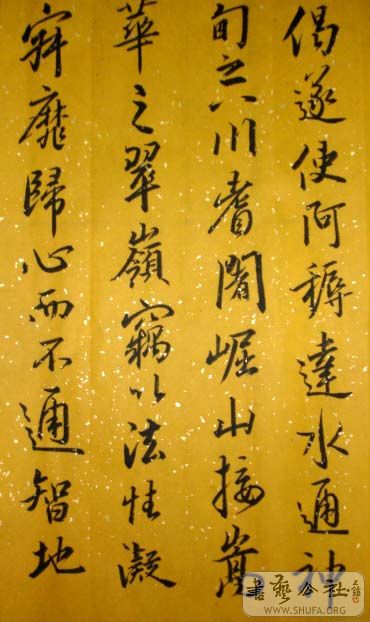 偈遂使阿耨達水通神
甸之八川耆闍崛山接嵩
華之翠嶺竊以法性凝
寂靡歸心而不通智地
書藝公社
WWW.SHUFA.ORG